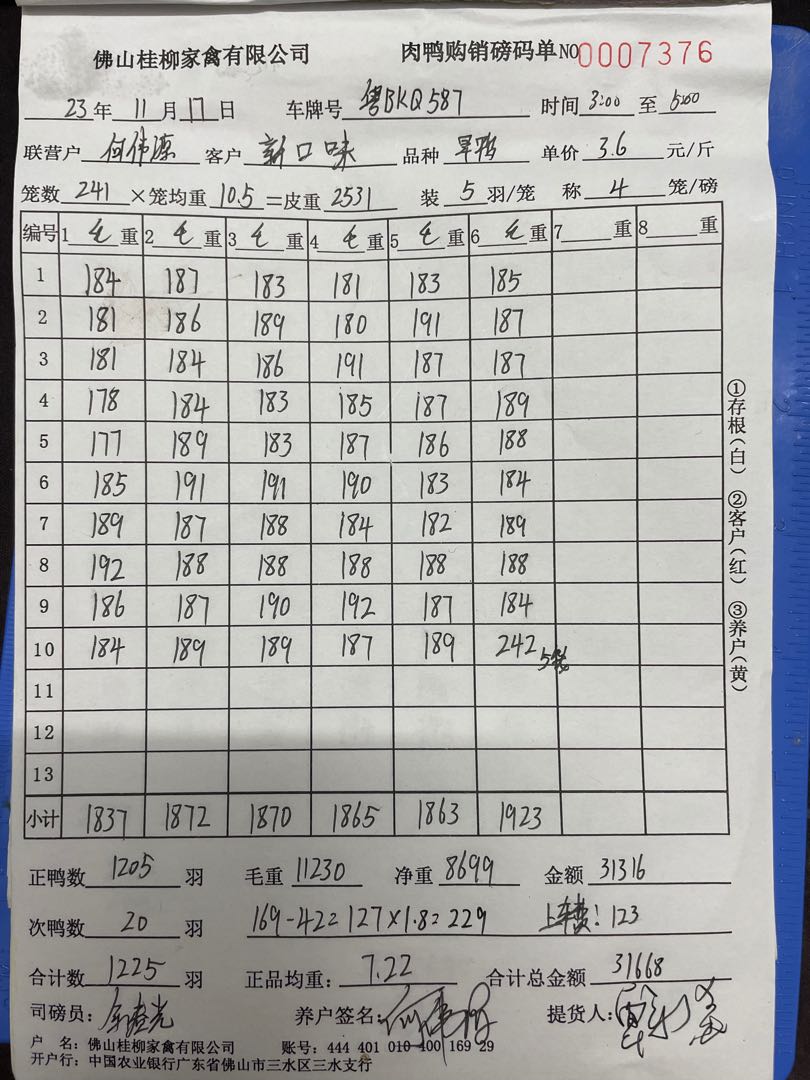 佛山桂柳家禽有限公司 肉鸭购销磅码单 NO 0007376
23年 11月 17日 车牌号 粤BKQ587 时间 3:00 至 5:00
联营户 何伟源 客户 新口味 品种 旱鸭 单价 3.6 元/斤
笼数 241 ×笼均重 10.5 =皮重 2531 装 5 羽/笼 称 4 笼/磅
编号 1 毛 重 2 毛 重 3 毛 重 4 毛 重 5 毛 重 6 毛 重 7 重 8 重
1 184 187 183 181 183 185
2 181 186 189 180 191 187
3 181 184 186 191 187 187
4 178 184 183 185 187 189
5 177 189 183 187 186 188
6 185 191 191 190 183 184
7 189 187 188 184 182 189
8 192 188 188 188 188 188
9 186 187 190 192 187 184
10 184 189 189 187 189 242 5笼
11
12
13
小计 1837 1872 1870 1865 1863 1923
①存根(白) ②客户(红) ③养户(黄)
正鸭数 1205 羽 毛重 11230 净重 8699 金额 31316
次鸭数 20 羽 169-42=127×1.8=229 上车费:123
合计数 1225 羽 正品均重: 7.22 合计总金额 31668
司磅员: 养户签名: 提货人:
户 名: 佛山桂柳家禽有限公司 账号: 444 401 010 400 169 29
开户行: 中国农业银行广东省佛山市三水区三水支行